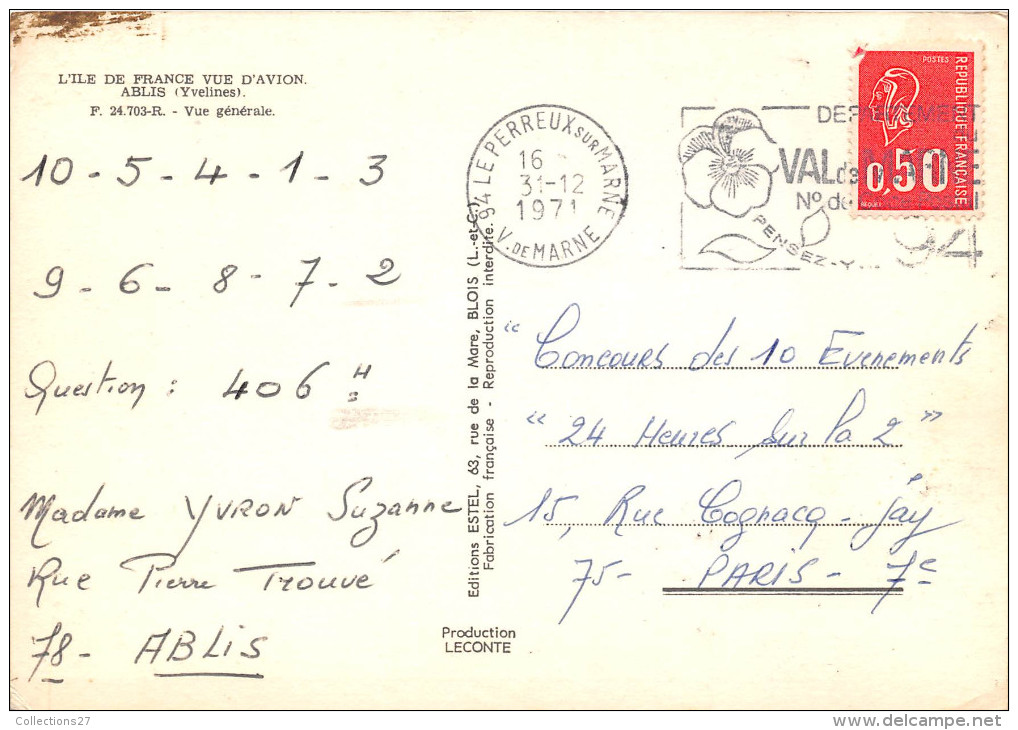 L'ILE DE FRANCE VUE D'AVION.
ABLIS (Yvelines).
F. 24.703-R. - Vue générale.
10 - 5 - 4 - 1 - 3
9 - 6 - 8 - 7 - 2
Question : 406 H
Madame YVRON Suzanne
Rue Pierre Trouvé
78 - ABLIS
Editions ESTEL, 63, rue de la Mare, BLOIS (L.-et-C.)
Fabrication française - Reproduction interdite.
Production
LECONTE
94 LE PERREUX SUR MARNE
16 -
31-12
1971
V. DE MARNE
VAL de MARNE
No de
94
PENSEZ-Y...
POSTES
REPUBLIQUE FRANÇAISE
0,50
" Concours des 10 Evenements
" 24 Heures sur la 2 "
15, Rue Cognacq-Jay
75 - PARIS - 7e
Collections27
www.delcampe.net